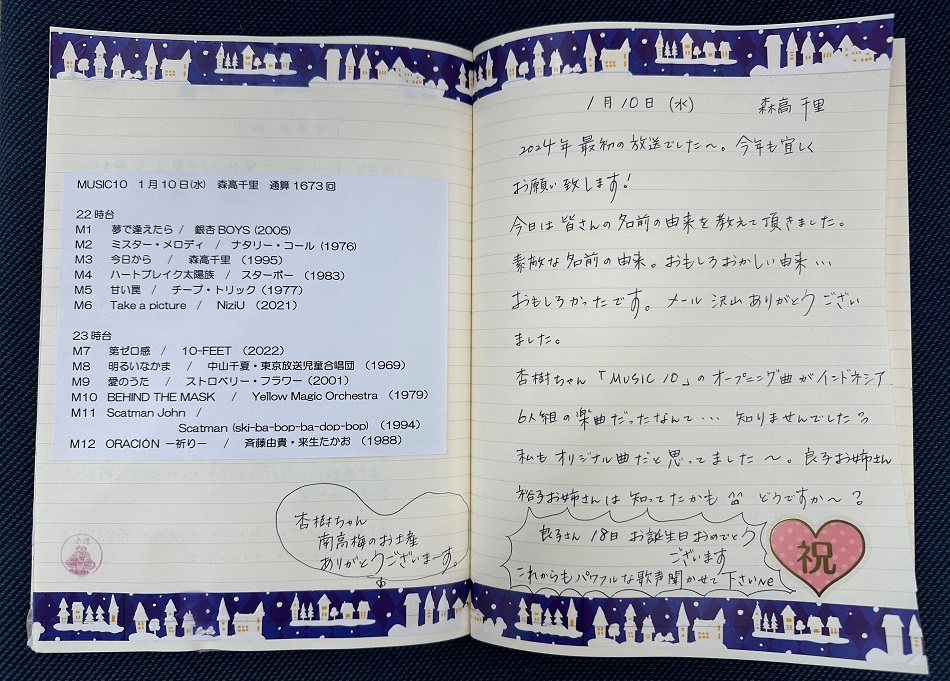 MUSIC10 1月10日(水) 森高千里 通算1673回
22時台
M1 夢で逢えたら / 銀杏BOYS (2005)
M2 ミスター・メロディ / ナタリー・コール (1976)
M3 今日から / 森高千里 (1995)
M4 ハートブレイク太陽族 / スターボー (1983)
M5 甘い罠 / チープ・トリック (1977)
M6 Take a picture / NiziU (2021)
23時台
M7 第ゼロ感 / 10-FEET (2022)
M8 明るいなかま / 中山千夏・東京放送児童合唱団 (1969)
M9 愛のうた / ストロベリー・フラワー (2001)
M10 BEHIND THE MASK / Yellow Magic Orchestra (1979)
M11 Scatman John /
Scatman (ski-ba-bop-ba-dop-bop) (1994)
M12 ORACIÓN －祈り－ / 斉藤由貴・来生たかお (1988)
杏樹ちゃん
南高梅のお土産
ありがとうございまーす。
1月10日 (水) 森高千里
2024年 最初の放送でした〜。今年も宜しく
お願い致します!
今日は皆さんの名前の由来を教えて頂きました。
素敵な名前の由来。おもしろおかしい由来…
おもしろかったです。メール沢山ありがとうござい
ました。
杏樹ちゃん「MUSIC 10」のオープニング曲がインドネシア
6人組の楽曲だったなんて… 知りませんでした
私もオリジナル曲だと思ってました〜。良子お姉さん
裕子お姉さんは知ってたかも どうですか〜?
良子さん 18日 お誕生日おめでとう
ございます
これからもパワフルな歌声聞かせて下さいNe
祝